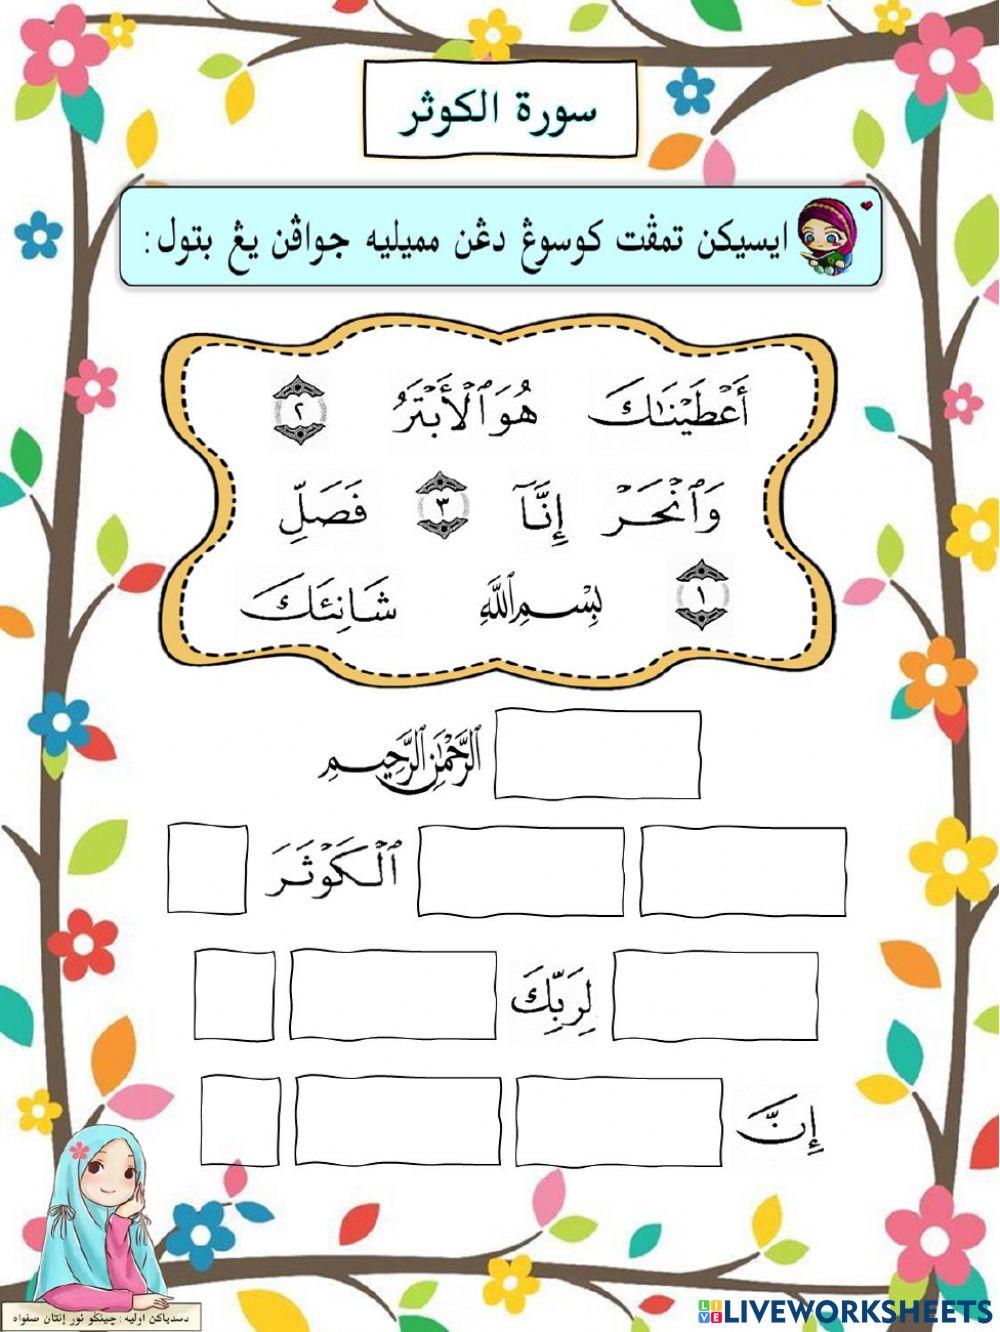 سورة الكوثر
ايسيكن تمڤت كوسوڠ دڠن مميليه جواڤن يڠ بتول:
أَعْطَيْنَـٰكَ هُوَ ٱلْأَبْتَرُ ٢
وَٱنْحَرْ إِنَّآ ٣ فَصَلِّ
١ بِسْمِ ٱللَّهِ شَانِئَكَ
ٱلرَّحْمَـٰنِ ٱلرَّحِيمِ
ٱلْكَوْثَرَ
لِرَبِّكَ
إِنَّ
دسدياكن اوليه : چيݢو نور إنتان صفواه
LIVEWORKSHEETS